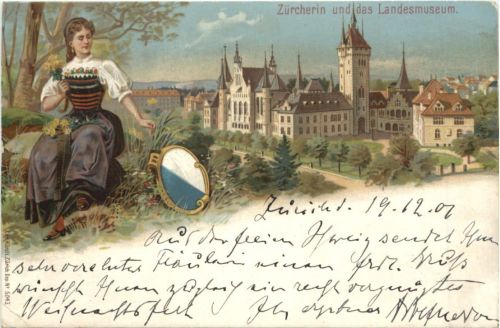 Zürcherin und das Landesmuseum.
Zürich d. 19.12.01
Aus der freien Schweiz sendet Ihnen
sehr verehrtes Fräulein einen frdl. Gruß
wünscht Ihnen zugleich ein recht vergnügtes
Weihnachtsfest Ihr ergebener